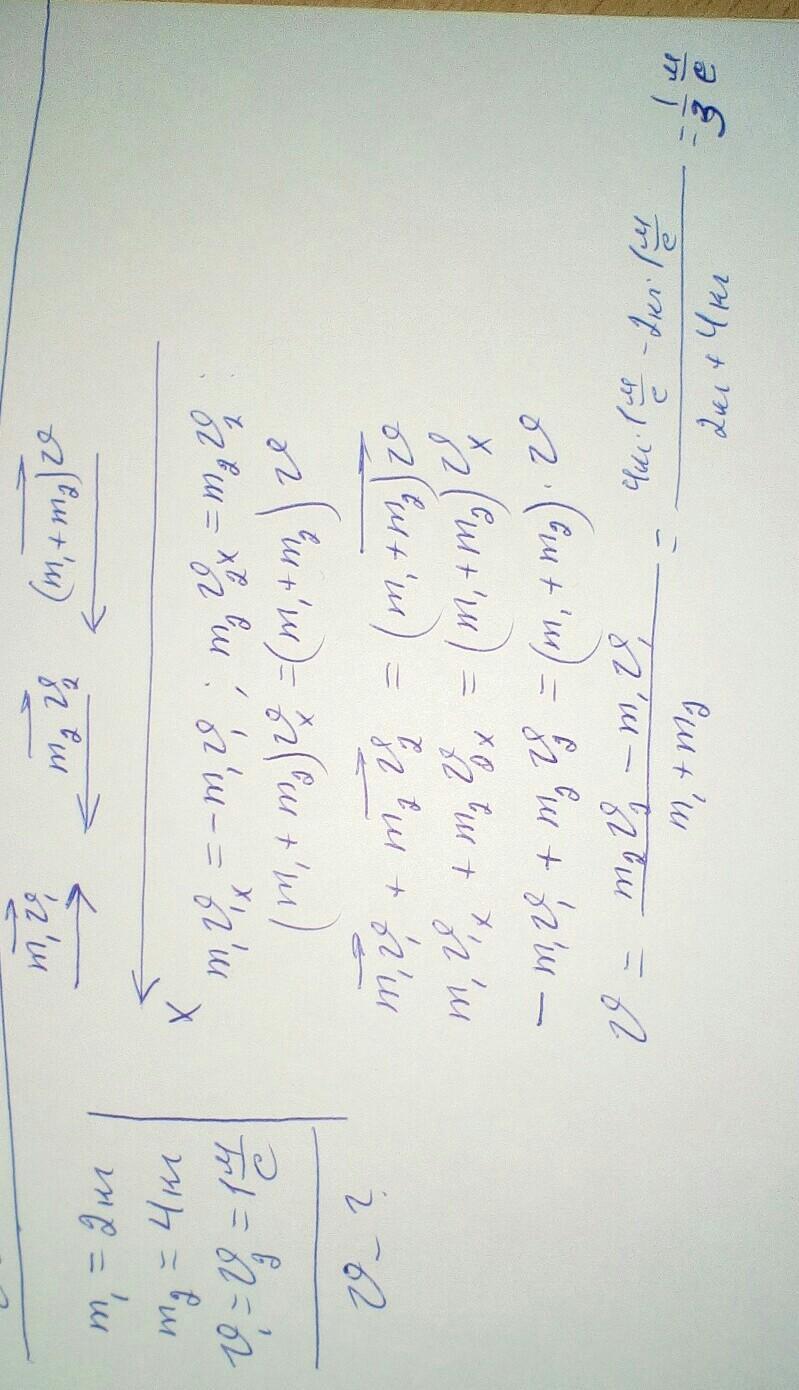 m₁ = 2кг
m₂ = 4кг
υ₁ = υ₂ = 1 м/с
υ – ?
m₁υ⃗₁ m₂υ⃗₂ (m₁ + m₂)υ⃗
x
m₁υ₁ₓ = – m₁υ₁; m₂υ₂ₓ = m₂υ₂;
(m₁ + m₂)υₓ = (m₁ + m₂)υ
m₁υ⃗₁ + m₂υ⃗₂ = (m₁ + m₂)υ⃗
m₁υ₁ₓ + m₂υ₂ₓ = (m₁ + m₂)υₓ
– m₁υ₁ + m₂υ₂ = (m₁ + m₂)·υ
υ = (m₂υ₂ – m₁υ₁)/(m₁ + m₂) = (4кг·1 м/с – 2кг·1 м/с)/(2кг + 4кг) = 1/3 м/с